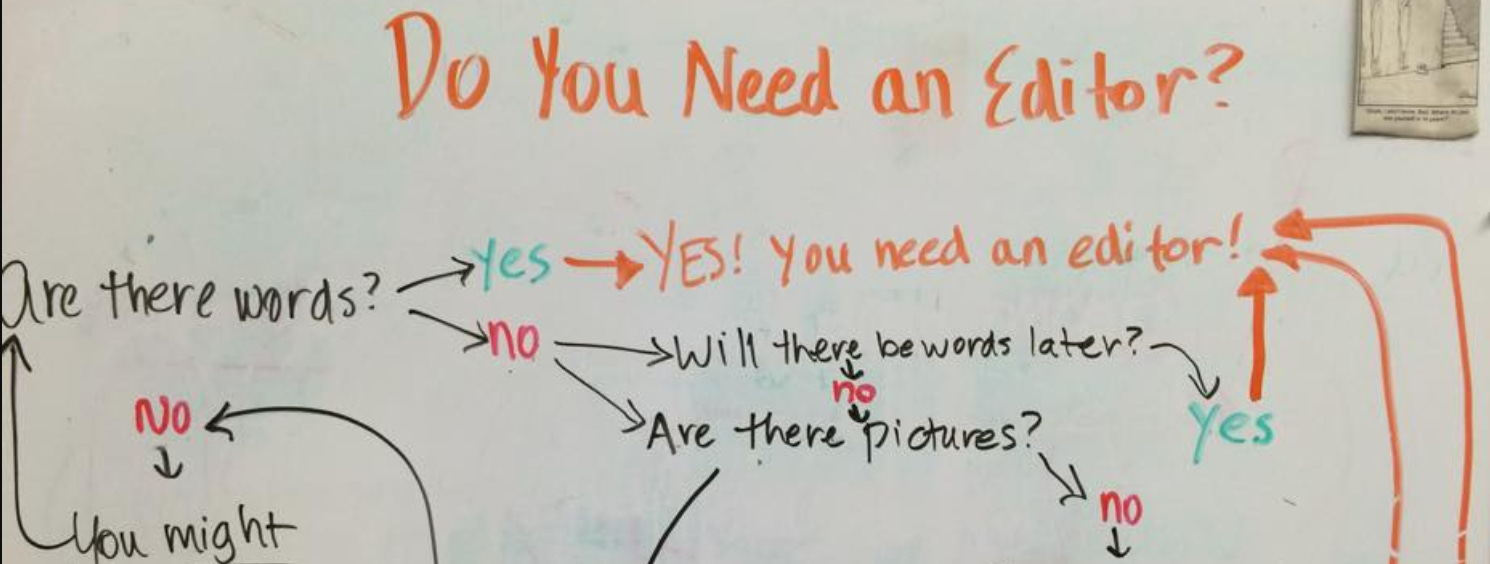 Do You Need an Editor?
Are there words?
yes
YES! You need an editor!
no
Will there be words later?
no
yes
Are there pictures?
no
NO
You might